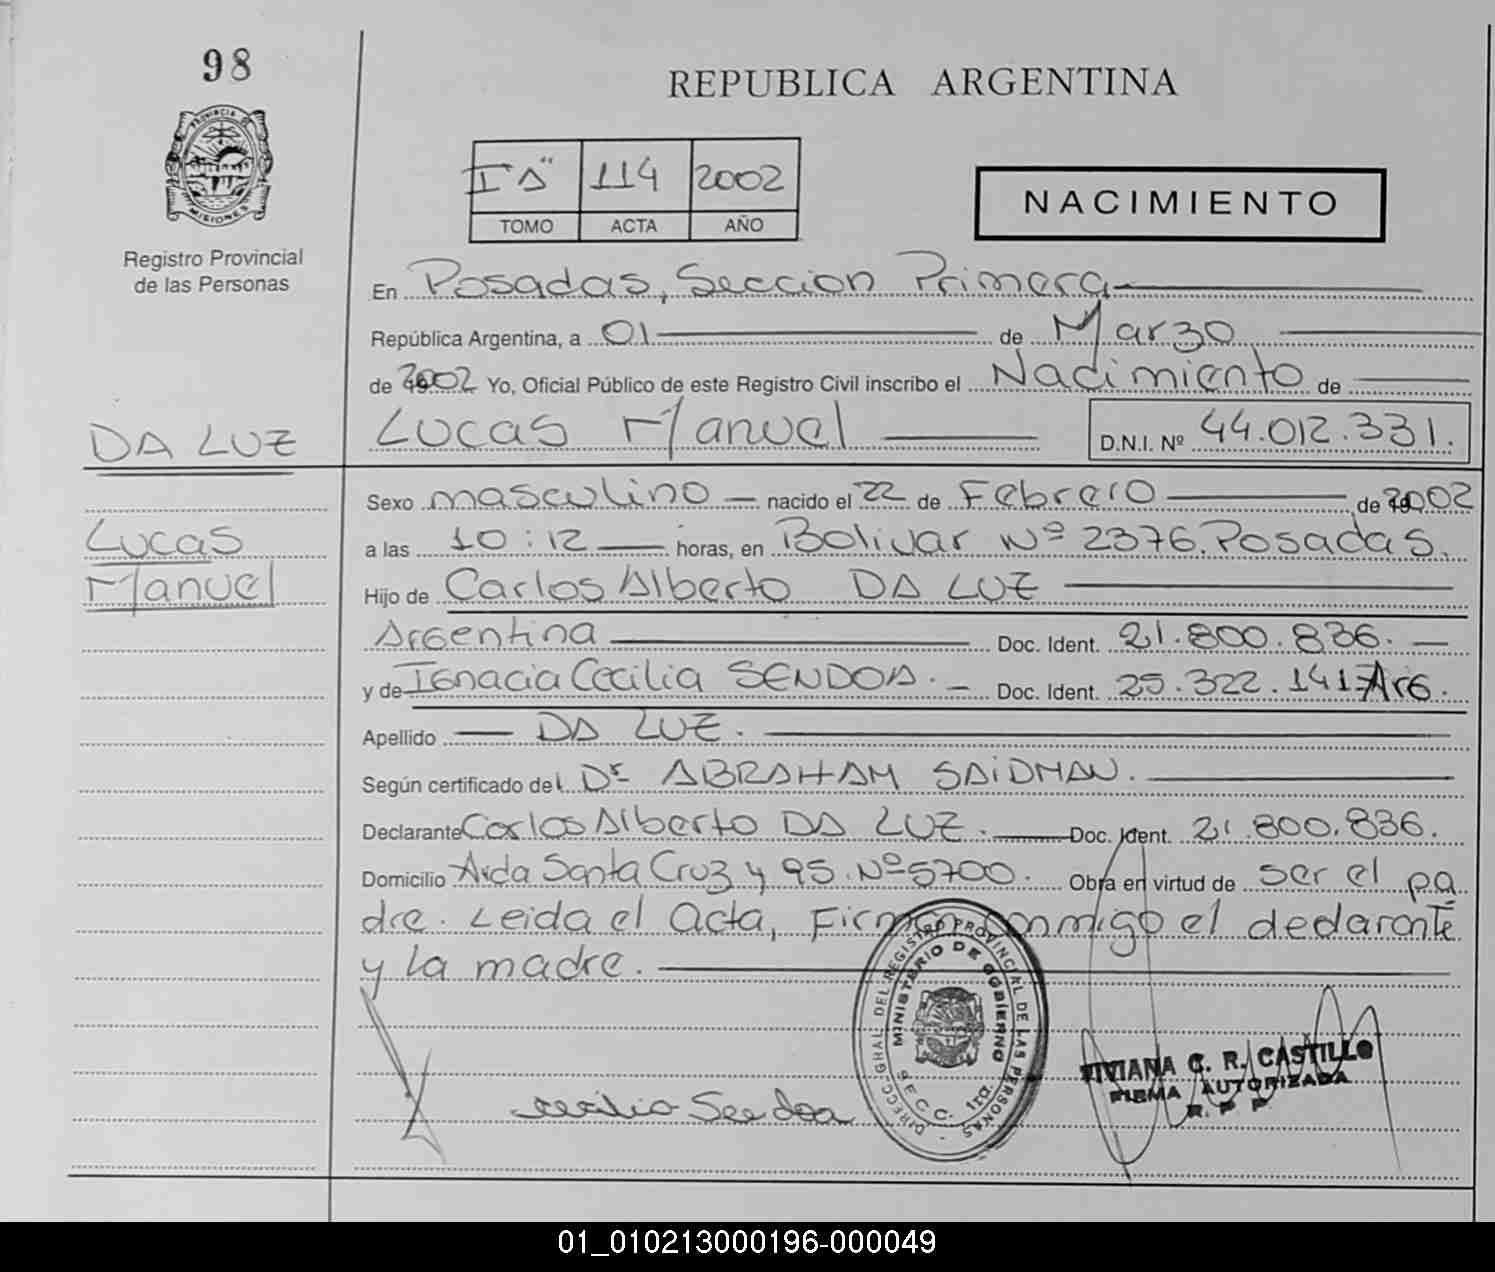 98
REPUBLICA ARGENTINA
PROVINCIA DE
MISIONES
Registro Provincial
de las Personas
I"A" 114 2002
TOMO ACTA AÑO
NACIMIENTO
En Posadas, Seccion Primera
República Argentina, a 01 de Marzo
de 2002 Yo, Oficial Público de este Registro Civil inscribo el Nacimiento de
DA LUZ
Lucas Manuel D.N.I. Nº 44.012.331.
Sexo masculino nacido el 22 de Febrero de 2002
Lucas
a las 10:12 horas, en Bolivar Nº 2376. Posadas.
Manuel
Hijo de Carlos Alberto DA LUZ
Argentina Doc. Ident. 21.800.836.
y de Ignacia Cecilia SENDOA. Doc. Ident. 25.322.141 Arg.
Apellido DA LUZ.
Según certificado del Dr ABRAHAM SAIDMAN.
Declarante Carlos Alberto DA LUZ. Doc. Ident. 21.800.836.
Domicilio Avda Santa Cruz y 95. Nº 5700. Obra en virtud de ser el pa
dre. Leida el acta, Firman conmigo el declarante
y la madre.
DIRECC. GRAL DEL REGISTRO PROVINCIAL DE LAS PERSONAS
MINISTERIO DE GOBIERNO
SECC. 1ra.
VIVIANA C. R. CASTILLO
FIRMA AUTORIZADA
R. P. P
Cecilia Sendoa
01_010213000196-000049